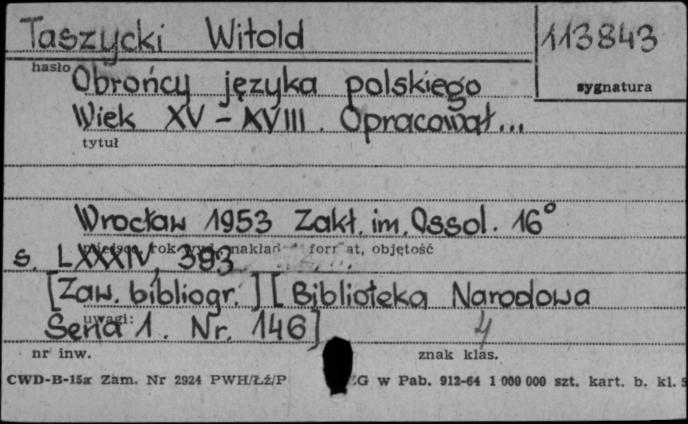 Taszycki Witold
113843
hasło
sygnatura
Obrońcy języka polskiego
Wiek XV - XVIII. Opracował...
tytuł
Wrocław 1953 Zakł. im. Ossol. 16°
miejsce, rok wyd., nakład format, objętość
s. LXXXIV, 393
[Zaw. bibliogr.] [Biblioteka Narodowa
uwagi:
Seria 1. Nr. 146]
4
nr inw.
znak klas.
CWD-B-15a Zam. Nr 2924 PWH/Łż/P G w Pab. 912-64 1 000 000 szt. kart. b. kl. 5